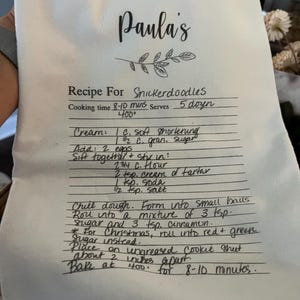 Paula's
Recipe For Snickerdoodles
Cooking time 8-10 mins Serves 5 dozen
400°
Cream: 1 c. soft shortening
1 ½ c. gran. sugar
Add: 2 eggs
Sift together & stir in:
2 ¾ c. flour
2 tsp. cream of tartar
1 tsp. soda
½ tsp. salt
Chill dough. Form into small balls
Roll into a mixture of 3 tsp.
sugar and 3 tsp. cinnamon.
* For Christmas, roll into red & green
sugar instead.
Place on ungreased cookie sheet
about 2 inches apart
Bake at 400° for 8-10 minutes.